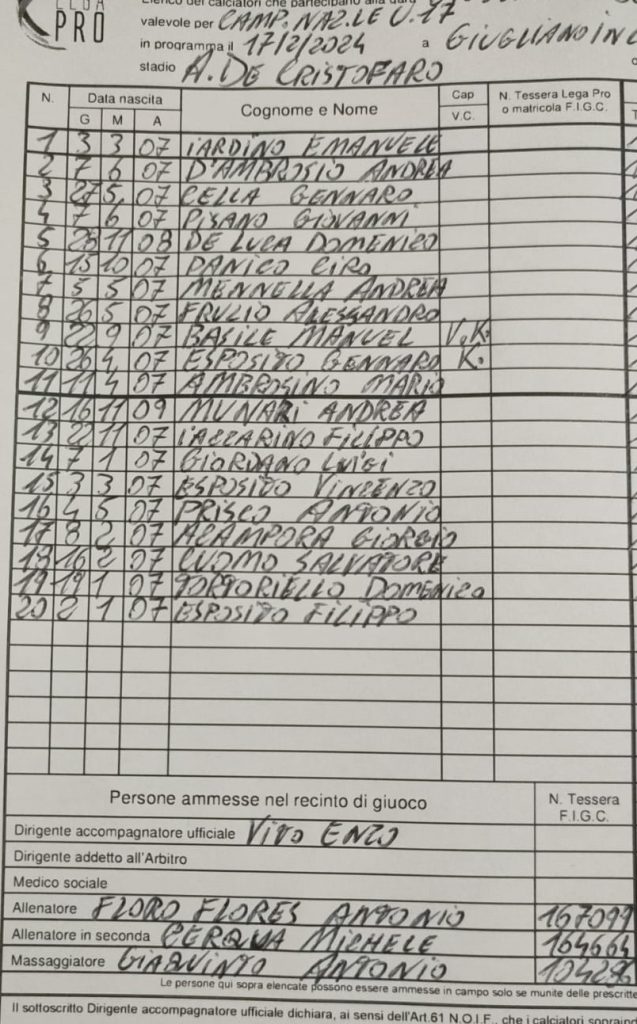 LEGA
PRO
Elenco dei calciatori che partecipano alla gara
valevole per CAMP. NAZ.LE U.17
in programma il 17/2/2024 a GIUGLIANO IN C
stadio A. DE CRISTOFARO
N. Data nascita Cognome e Nome Cap N. Tessera Lega Pro
G M A V.C. o matricola F.I.G.C.
1 3 3 07 IARDINO EMANUELE
2 7 6 07 D'AMBROSIO ANDREA
3 27 5 07 CELLA GENNARO
4 7 6 07 PISANO GIOVANNI
5 28 11 08 DE LUCA DOMENICO
6 15 10 07 PANICO CIRO
7 5 5 07 MENNELLA ANDREA
8 26 5 07 FRULIO ALESSANDRO
9 22 9 07 BASILE MANUEL V.K.
10 26 4 07 ESPOSITO GENNARO K.
11 11 4 07 AMBROSINO MARIO
12 16 11 09 MUNARI ANDREA
13 22 11 07 IAZZARINO FILIPPO
14 7 1 07 GIORDANO LUIGI
15 3 3 07 ESPOSITO VINCENZO
16 4 5 07 PRISCO ANTONIO
17 8 2 07 ACAMPORA GIORGIO
18 16 2 07 CUOMO SALVATORE
19 19 1 07 TORTORIELLO DOMENICO
20 2 1 07 ESPOSITO FILIPPO
Persone ammesse nel recinto di giuoco N. Tessera
F.I.G.C.
Dirigente accompagnatore ufficiale VITO ENZO
Dirigente addetto all'Arbitro
Medico sociale
Allenatore FLORO FLORES ANTONIO 167099
Allenatore in seconda CERQUA MICHELE 164664
Massaggiatore GIAQUINTO ANTONIO 104296
Le persone qui sopra elencate possono essere ammesse in campo solo se munite delle prescritte
Il sottoscritto Dirigente accompagnatore ufficiale dichiara, ai sensi dell'Art.61 N.O.I.F., che i calciatori sopraind